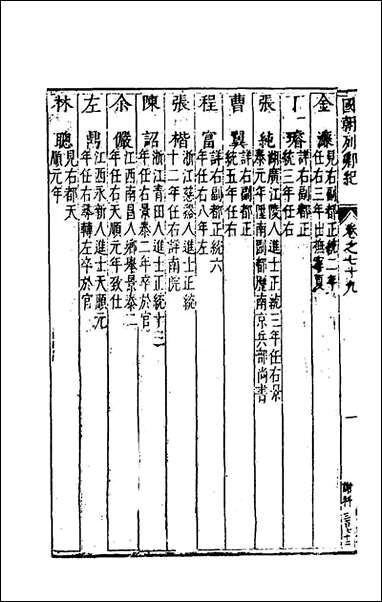 國朝列卿紀 卷之七十九 一
金濂 見右副都正統二年
任右三年出撫寧夏
丁璿 詳右副都正
統三年任右
張純 湖廣江陵人進士正統三年任右景
泰元年陞南副都歷南京兵部尚書
曹翼 詳右副都正
統五年任右
程富 詳右副都正統六
年任右八年左
張楷 浙江慈谿人進士正統
十二年任右詳南院
陳詔 浙江青田人進士正統十三
年任右景泰二年卒於官
余儼 江西南昌人鄉舉景泰二
年任右天順元年致仕
左鼎 江西永新人進士天順元
年任右尋轉左卒於官
林聰 見右都天
順元年